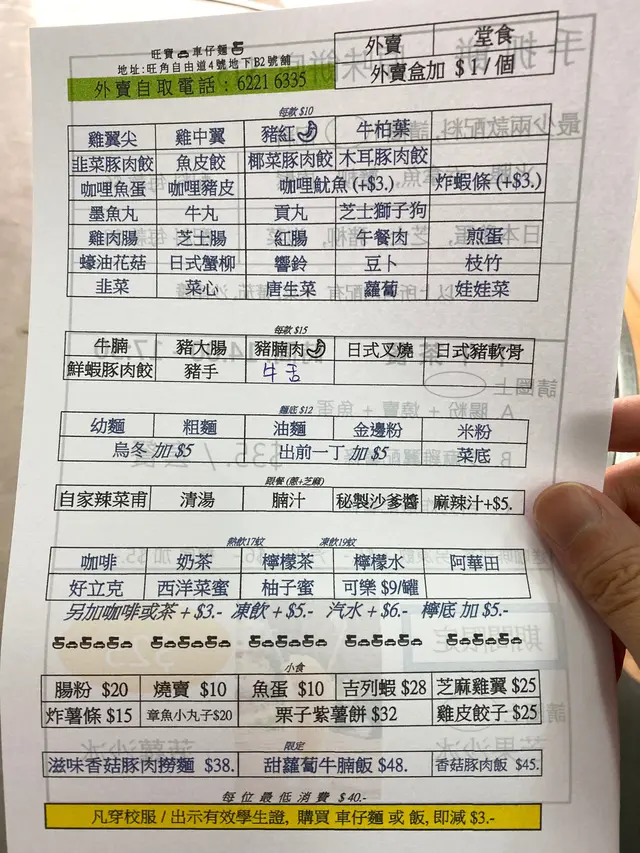 旺寶車仔麵
地址:旺角自由道4號地下B2號舖
外賣自取電話：6221 6335
外賣 堂食
外賣盒加 $1/個
每款 $10
雞翼尖 雞中翼 豬紅 牛柏葉
韭菜豚肉餃 魚皮餃 椰菜豚肉餃 木耳豚肉餃
咖哩魚蛋 咖哩豬皮 咖哩魷魚 (+$3.) 炸蝦條 (+$3.)
墨魚丸 牛丸 貢丸 芝士獅子狗
雞肉腸 芝士腸 紅腸 午餐肉 煎蛋
蠔油花菇 日式蟹柳 響鈴 豆卜 枝竹
韭菜 菜心 唐生菜 蘿蔔 娃娃菜
每款 $15
牛腩 豬大腸 豬腩肉 日式叉燒 日式豬軟骨
鮮蝦豚肉餃 豬手 牛舌
麵底 $12
幼麵 粗麵 油麵 金邊粉 米粉
烏冬 加 $5 出前一丁 加 $5 菜底
跟餐 (蔥+芝麻)
自家辣菜甫 清湯 腩汁 秘製沙爹醬 麻辣汁+$5.
熱飲17蚊 凍飲19蚊
咖啡 奶茶 檸檬茶 檸檬水 阿華田
好立克 西洋菜蜜 柚子蜜 可樂 $9/罐
另加咖啡或茶 + $3.- 凍飲 + $5.- 汽水 + $6.- 檸底 加 $5.-
小食
腸粉 $20 燒賣 $10 魚蛋 $10 吉列蝦 $28 芝麻雞翼 $25
炸薯條 $15 章魚小丸子$20 栗子紫薯餅 $32 雞皮餃子 $25
限定
滋味香菇豚肉撈麵 $38. 甜蘿蔔牛腩飯 $48. 香菇豚肉飯 $45.
每位最低消費 $40.-
凡穿校服 / 出示有效學生證, 購買 車仔麵 或 飯, 即減 $3.-